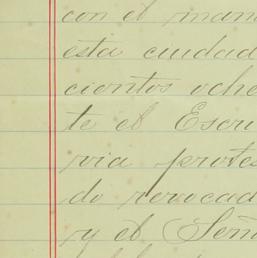 con el man
esta ciudad
cientos oche
te el Escri
via protes
do revocad
y el Señ